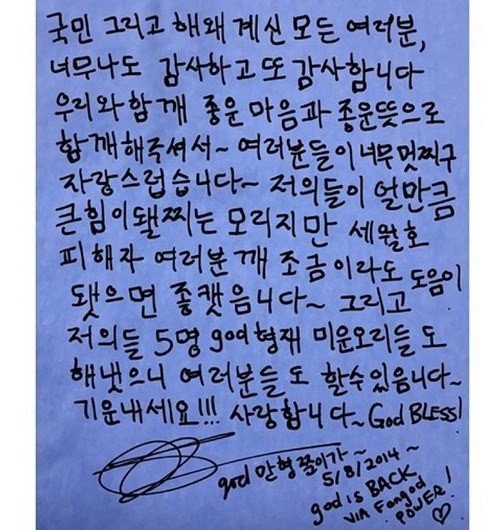 국민 그리고 해왜 계신 모든 여러분,
너무나도 감사하고 또 감사합니다
우리와 함깨 종운 마음과 종운뜻으로
함깨해주셔서~ 여러분들이 너무 멋찌구
자랑스럽습니다~ 저의들이 얼만큼
큰 힘이 됄찌는 모리지만 세월호
피해자 여러분깨 조금이라도 도음이
됏으면 좋캣음니다~ 그리고
저의들 5명 god 형재 미운오리들도
해냇으니 여러분들도 할수있음니다~
기운내세요!!! 사랑합니다~ God BLESS!
god 맏형 쭌이가~
5/8/2014~
god is BACK
VIA Fangod
POWER! ♡